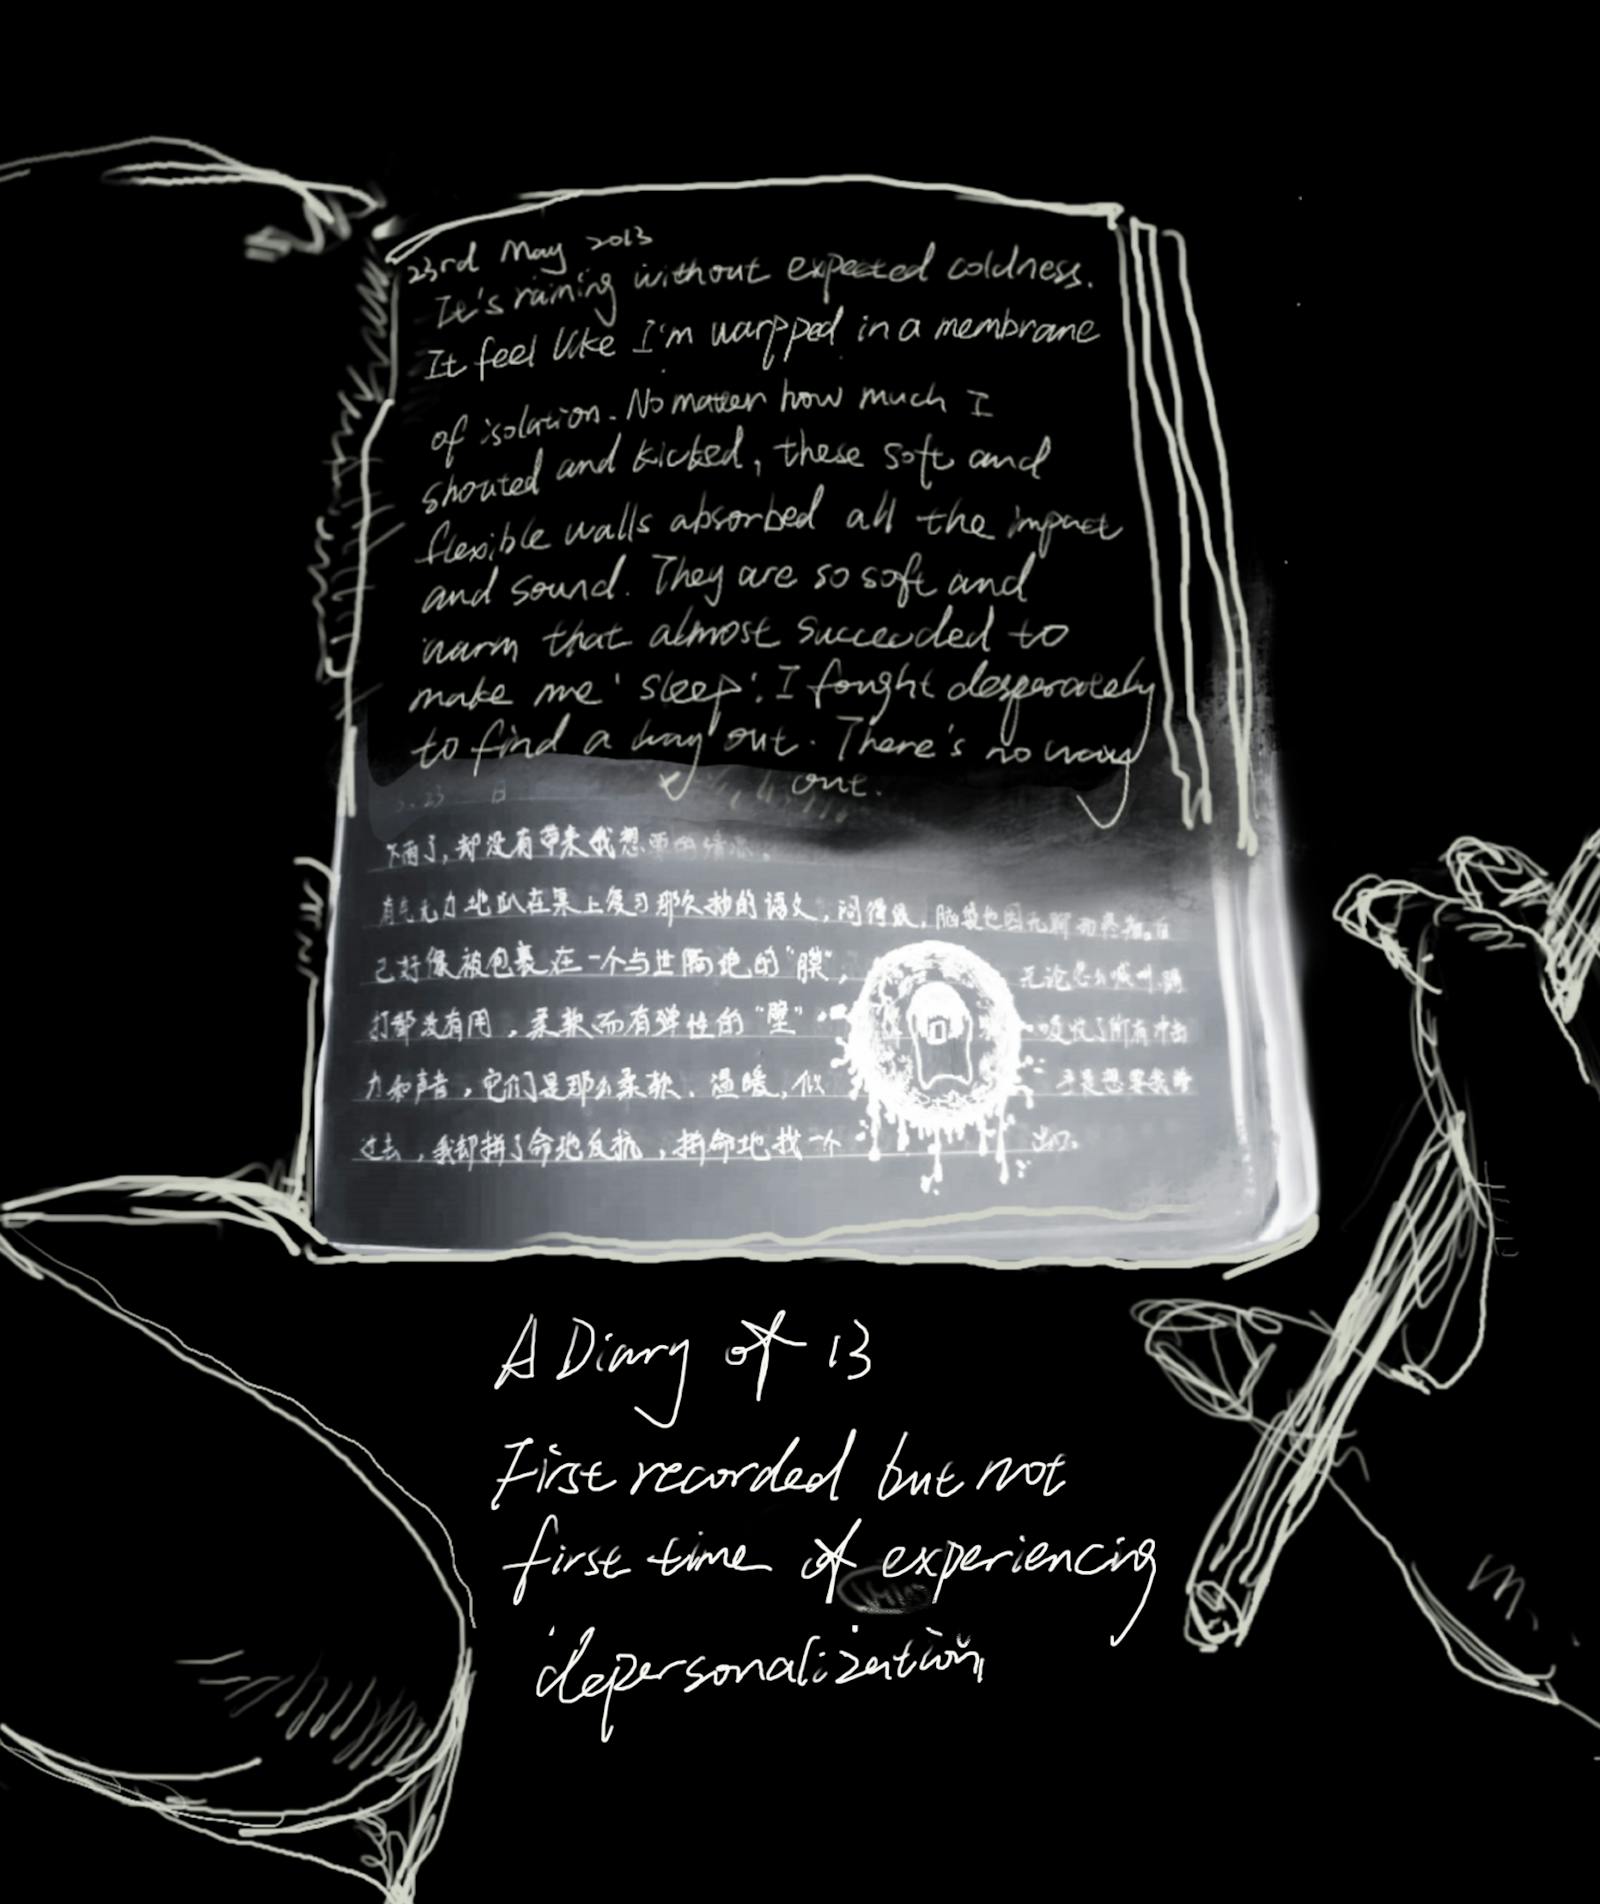 23rd May 2013
It's raining without expected coldness.
It feel like I'm warpped in a membrane
of isolation. No matter how much I
shouted and kicked, these soft and
flexible walls absorbed all the impact
and sound. They are so soft and
warm that almost succeeded to
make me 'sleep'. I fought desperately
to find a way out. There's no way
out.
5.23 日
下雨了,却没有带来我想要的清凉。
有气无力地趴在桌上复习那欠抄的语文,闷得很,脑袋也因无聊而疼痛。自
己好像被包裹在一个与世隔绝的“膜”, 无论怎么喊叫、踢
打都没有用,柔软而有弹性的“壁” 吸收了所有冲击
力和声音,它们是那么柔软、温暖,似 乎是想要我睡
过去,我却拼了命地反抗,拼命地找一个 出口。
A Diary of 13
First recorded but not
first time of experiencing
depersonalization